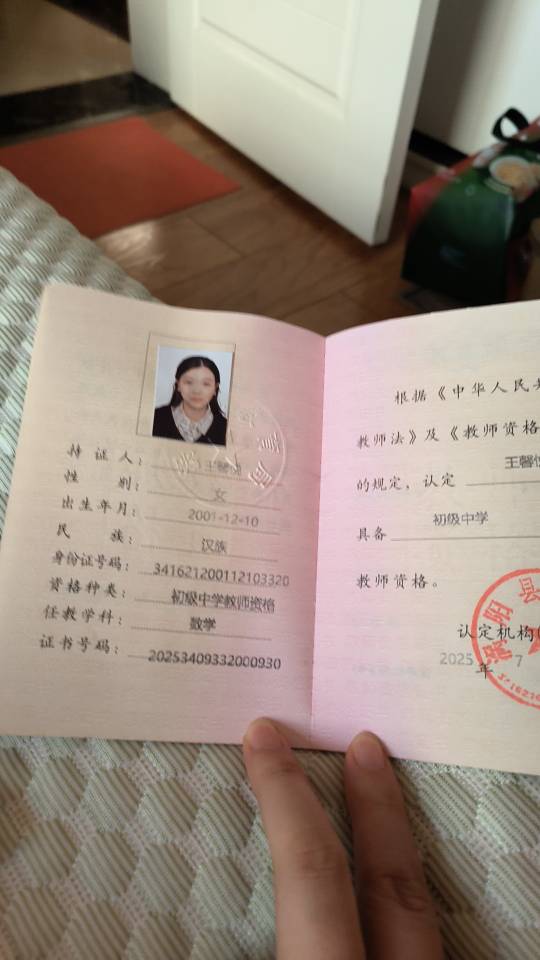 持 证 人：王馨悦
性 别：女
出生年月：2001-12-10
民 族：汉族
身份证号码：341621200112103320
资格种类：初级中学教师资格
任教学科：数学
证书号码：20253409332000930
根据《中华人民
教师法》及《教师资格
的规定，认定 王馨
具备 初级中学
教师资格。
认定机构
2025 年 7
涡阳县